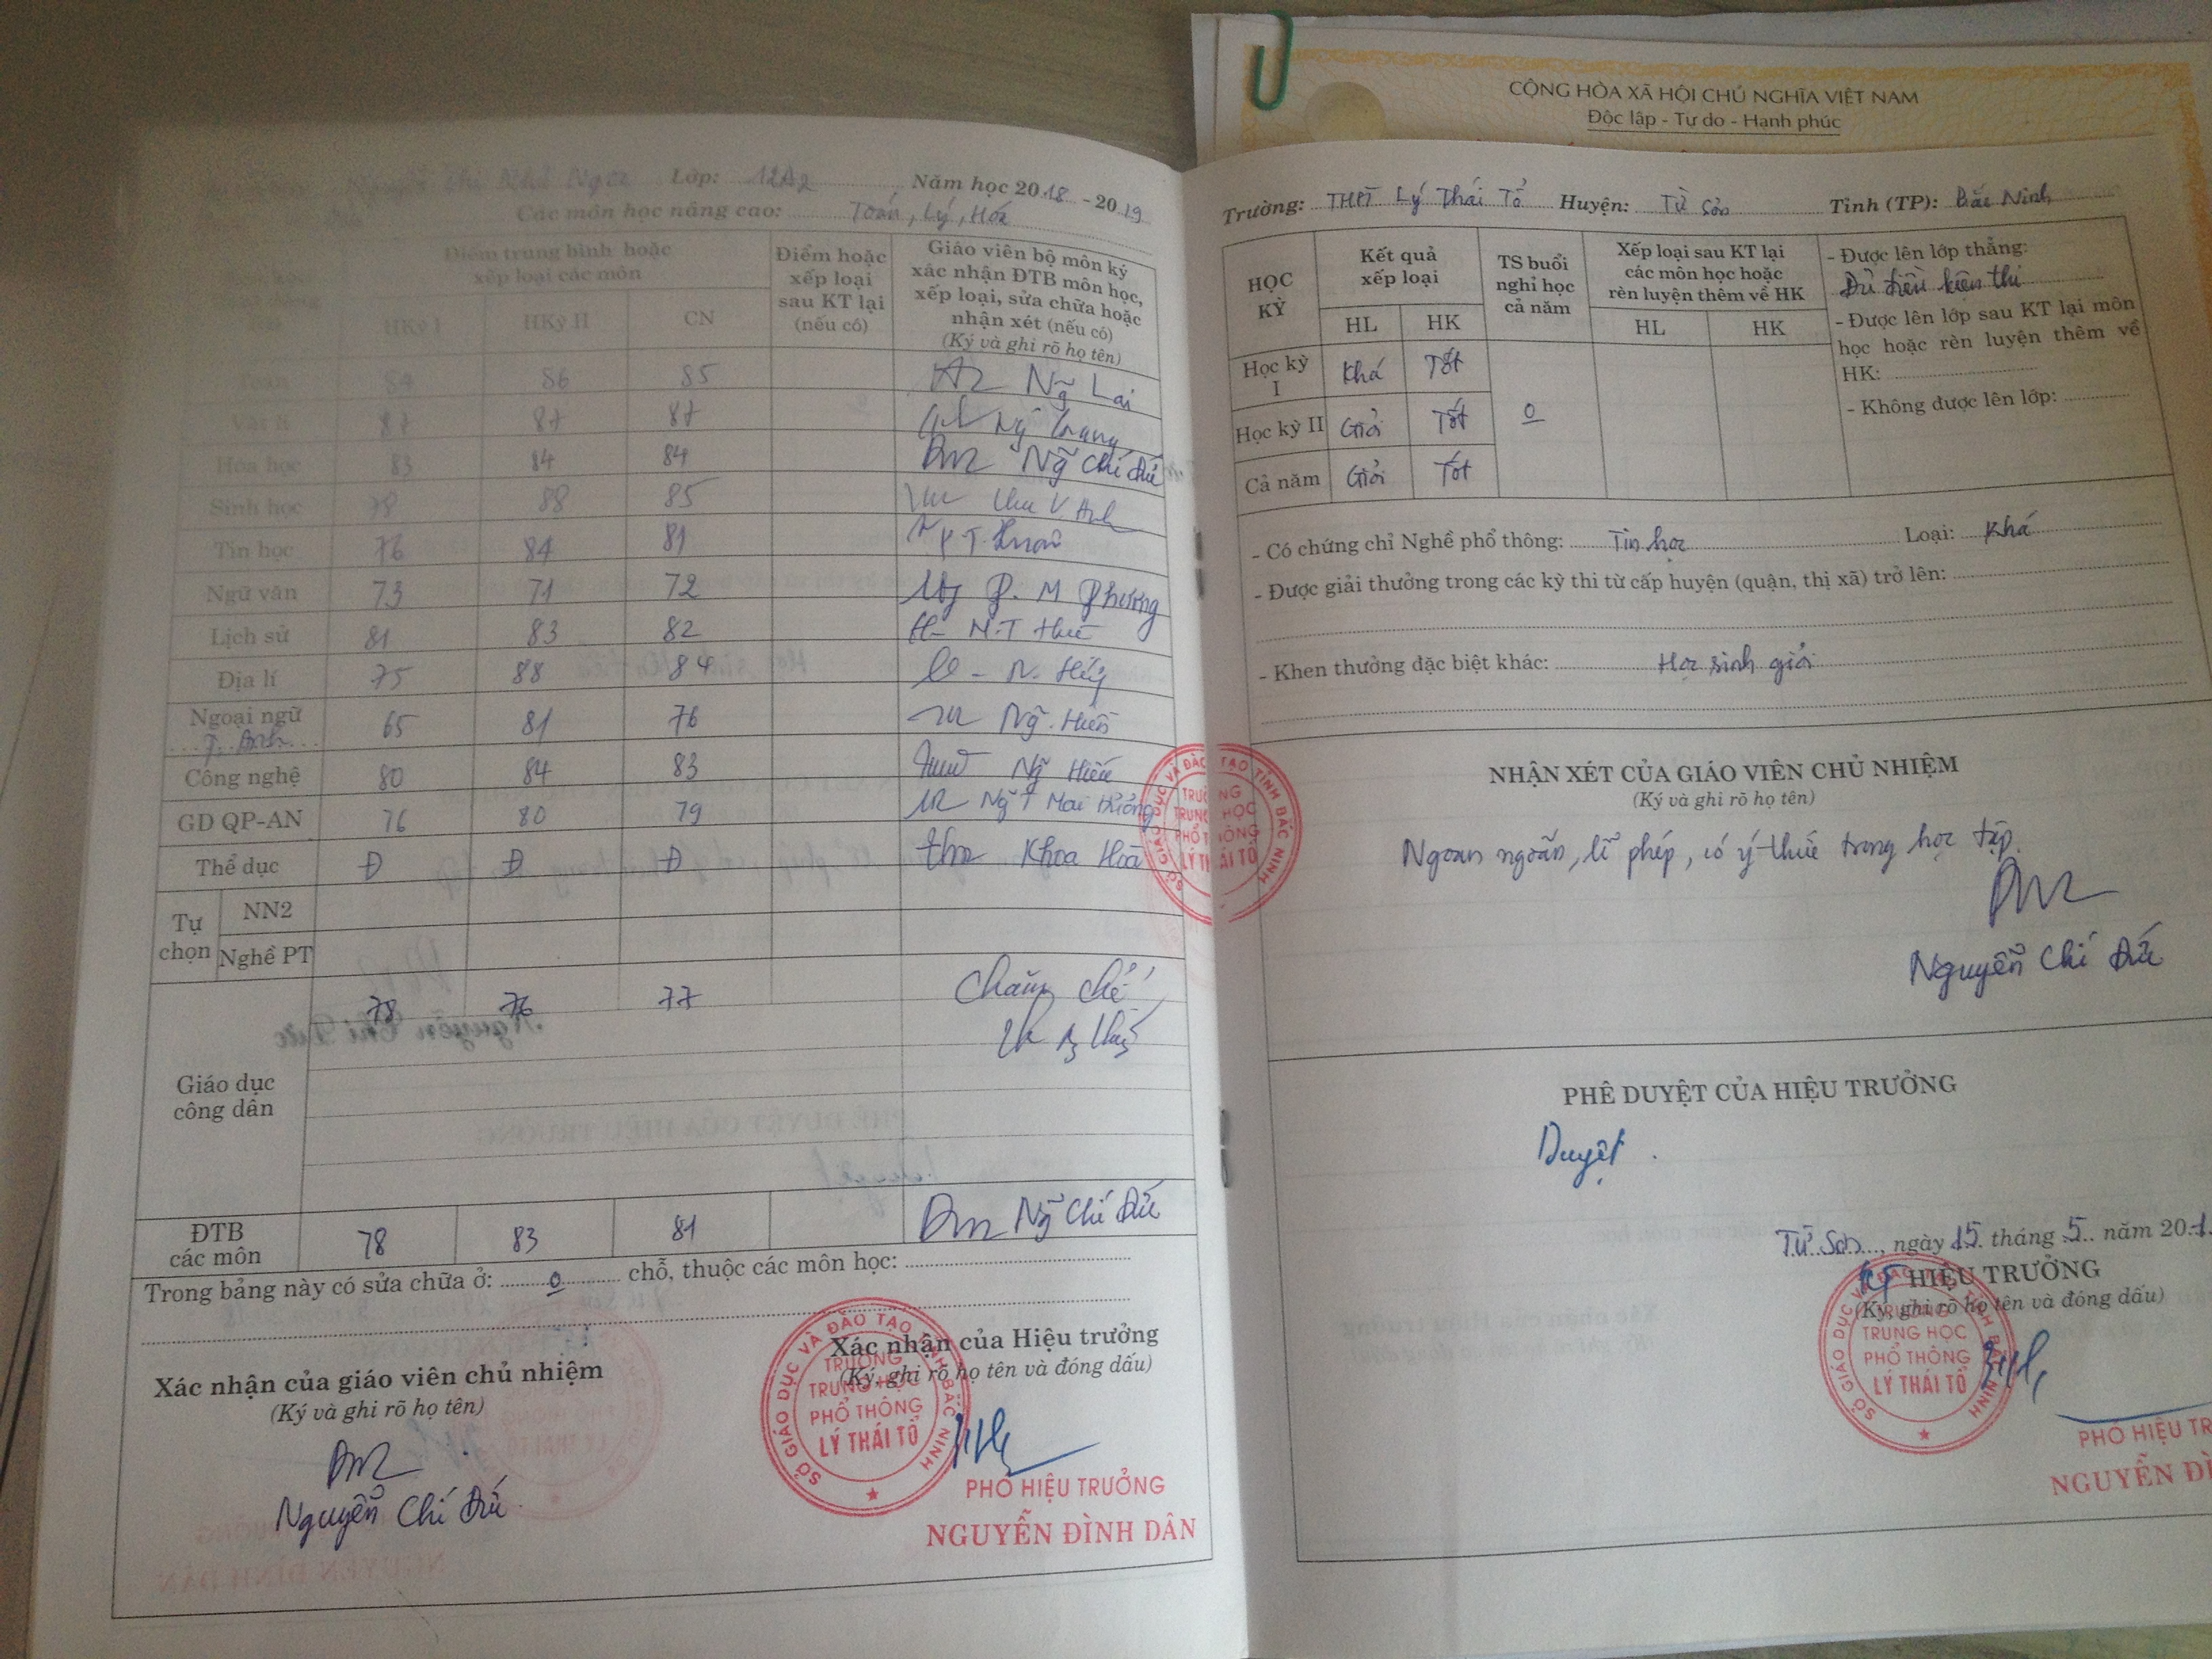 CỘNG HÒA XÃ HỘI CHỦ NGHĨA VIỆT NAM
Độc lập - Tự do - Hạnh phúc
Lớp: 12A2 Năm học 2018 - 2019
Các môn học nâng cao: Toán, Lý, Hóa
Điểm trung bình hoặc xếp loại các môn
Điểm hoặc xếp loại sau KT lại (nếu có)
Giáo viên bộ môn ký xác nhận ĐTB môn học, xếp loại, sửa chữa hoặc nhận xét (nếu có)
(Ký và ghi rõ họ tên)
HKỳ I HKỳ II CN
Toán 84 86 85 Ng̃ Lai
Vật lí 87 87 87
Hóa học 83 84 84 Ng̃ Chí Đức
Sinh học 78 88 85
Tin học 76 84 81
Ngữ văn 73 71 72 P. M Phương
Lịch sử 81 83 82
Địa lí 75 88 84
Ngoại ngữ 65 81 76 Ng̃. Hiền
T. Anh
Công nghệ 80 84 83
GD QP-AN 76 80 79
Thể dục Đ Đ Đ Khoa Hoà
Tự chọn
NN2
Nghề PT
Giáo dục công dân 78 76 77
ĐTB các môn 78 83 81 Ng̃ Chí Đức
Trong bảng này có sửa chữa ở: 0 chỗ, thuộc các môn học:
Xác nhận của giáo viên chủ nhiệm
(Ký và ghi rõ họ tên)
Nguyễn Chí Đức
Xác nhận của Hiệu trưởng
(Ký, ghi rõ họ tên và đóng dấu)
SỞ GIÁO DỤC VÀ ĐÀO TẠO TỈNH BẮC NINH
TRƯỜNG
TRUNG HỌC
PHỔ THÔNG
LÝ THÁI TỔ
PHÓ HIỆU TRƯỞNG
NGUYỄN ĐÌNH DÂN
Trường: THPT Lý Thái Tổ Huyện: Từ Sơn Tỉnh (TP): Bắc Ninh
HỌC KỲ
Kết quả xếp loại
TS buổi nghỉ học cả năm
Xếp loại sau KT lại các môn học hoặc rèn luyện thêm về HK
HL HK HL HK
Học kỳ I Khá Tốt
Học kỳ II Giỏi Tốt 0
Cả năm Giỏi Tốt
- Được lên lớp thẳng:
Đủ điều kiện thi
- Được lên lớp sau KT lại môn
học hoặc rèn luyện thêm về
HK:
- Không được lên lớp:
- Có chứng chỉ Nghề phổ thông: Tin học Loại: Khá
- Được giải thưởng trong các kỳ thi từ cấp huyện (quận, thị xã) trở lên:
- Khen thưởng đặc biệt khác: Học sinh giỏi
NHẬN XÉT CỦA GIÁO VIÊN CHỦ NHIỆM
(Ký và ghi rõ họ tên)
Ngoan ngoãn, lễ phép, có ý thức trong học tập.
Nguyễn Chí Đức
SỞ GIÁO DỤC VÀ ĐÀO TẠO TỈNH BẮC NINH
TRƯỜNG
TRUNG HỌC
PHỔ THÔNG
LÝ THÁI TỔ
PHÊ DUYỆT CỦA HIỆU TRƯỞNG
Duyệt.
Từ Sơn, ngày 15 tháng 5 năm 201
KT HIỆU TRƯỞNG
(Ký, ghi rõ họ tên và đóng dấu)
SỞ GIÁO DỤC VÀ ĐÀO TẠO TỈNH BẮC NINH
TRƯỜNG
TRUNG HỌC
PHỔ THÔNG
LÝ THÁI TỔ
PHÓ HIỆU TR
NGUYỄN ĐÌ